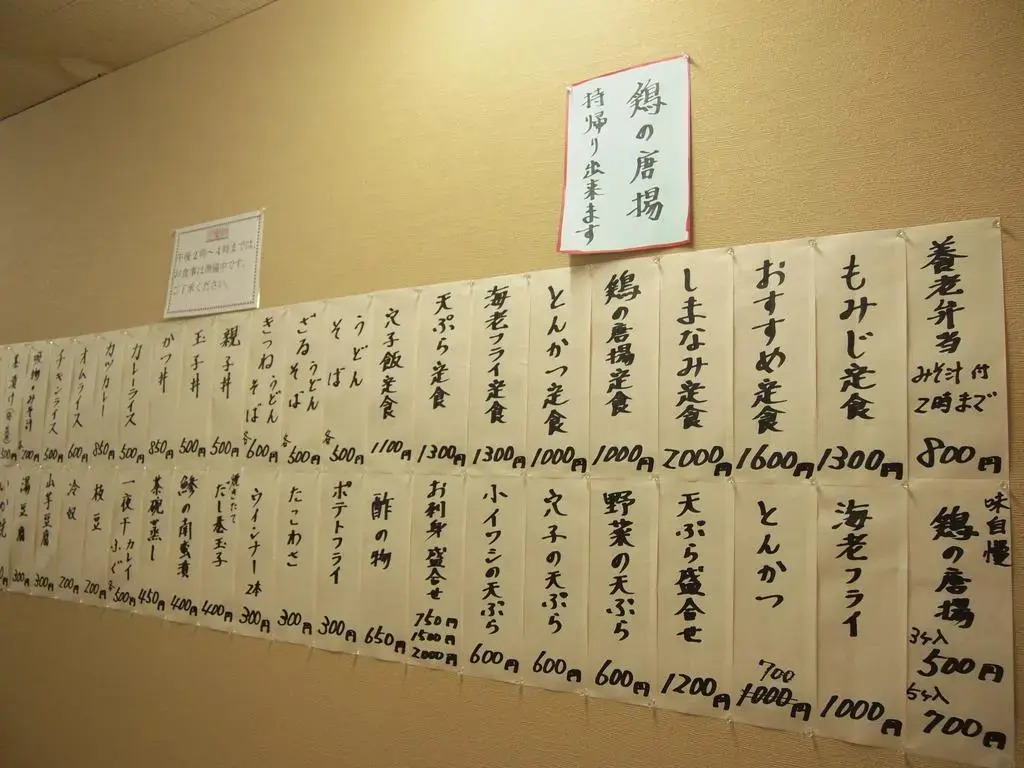 鶏の唐揚
持帰り出来ます
午後2時〜4時までは、
お食事は準備中です。
ご了承ください。
養老弁当
みそ汁付
2時まで
800円
もみじ定食
1300円
おすすめ定食
1600円
しまなみ定食
2000円
鶏の唐揚定食
1000円
とんかつ定食
1000円
海老フライ定食
1300円
天ぷら定食
1300円
穴子飯定食
1100円
うどん
そば
各500円
ざるうどん
そば
各500円
きつねうどん
そば
各600円
親子丼
500円
玉子丼
500円
かつ丼
850円
カレーライス
500円
カツカレー
850円
オムライス
600円
チキンライス
500円
吸物・みそ汁
各200円
茶漬け
500円
味自慢
鶏の唐揚
3ケ入
500円
5ケ入
700円
海老フライ
1000円
とんかつ
700
1000円
天ぷら盛合せ
1200円
野菜の天ぷら
600円
穴子の天ぷら
600円
小イワシの天ぷら
600円
お刺身盛合せ
750円
1500円
2000円
酢の物
650円
ポテトフライ
300円
たこわさ
300円
ウインナー2本
300円
焼きたて
だし巻玉子
400円
鯵の南蛮漬
400円
茶碗蒸し
450円
一夜干カレイ
ふぐ
各500円
枝豆
200円
冷奴
200円
山芋豆腐
300円
湯豆腐
300円